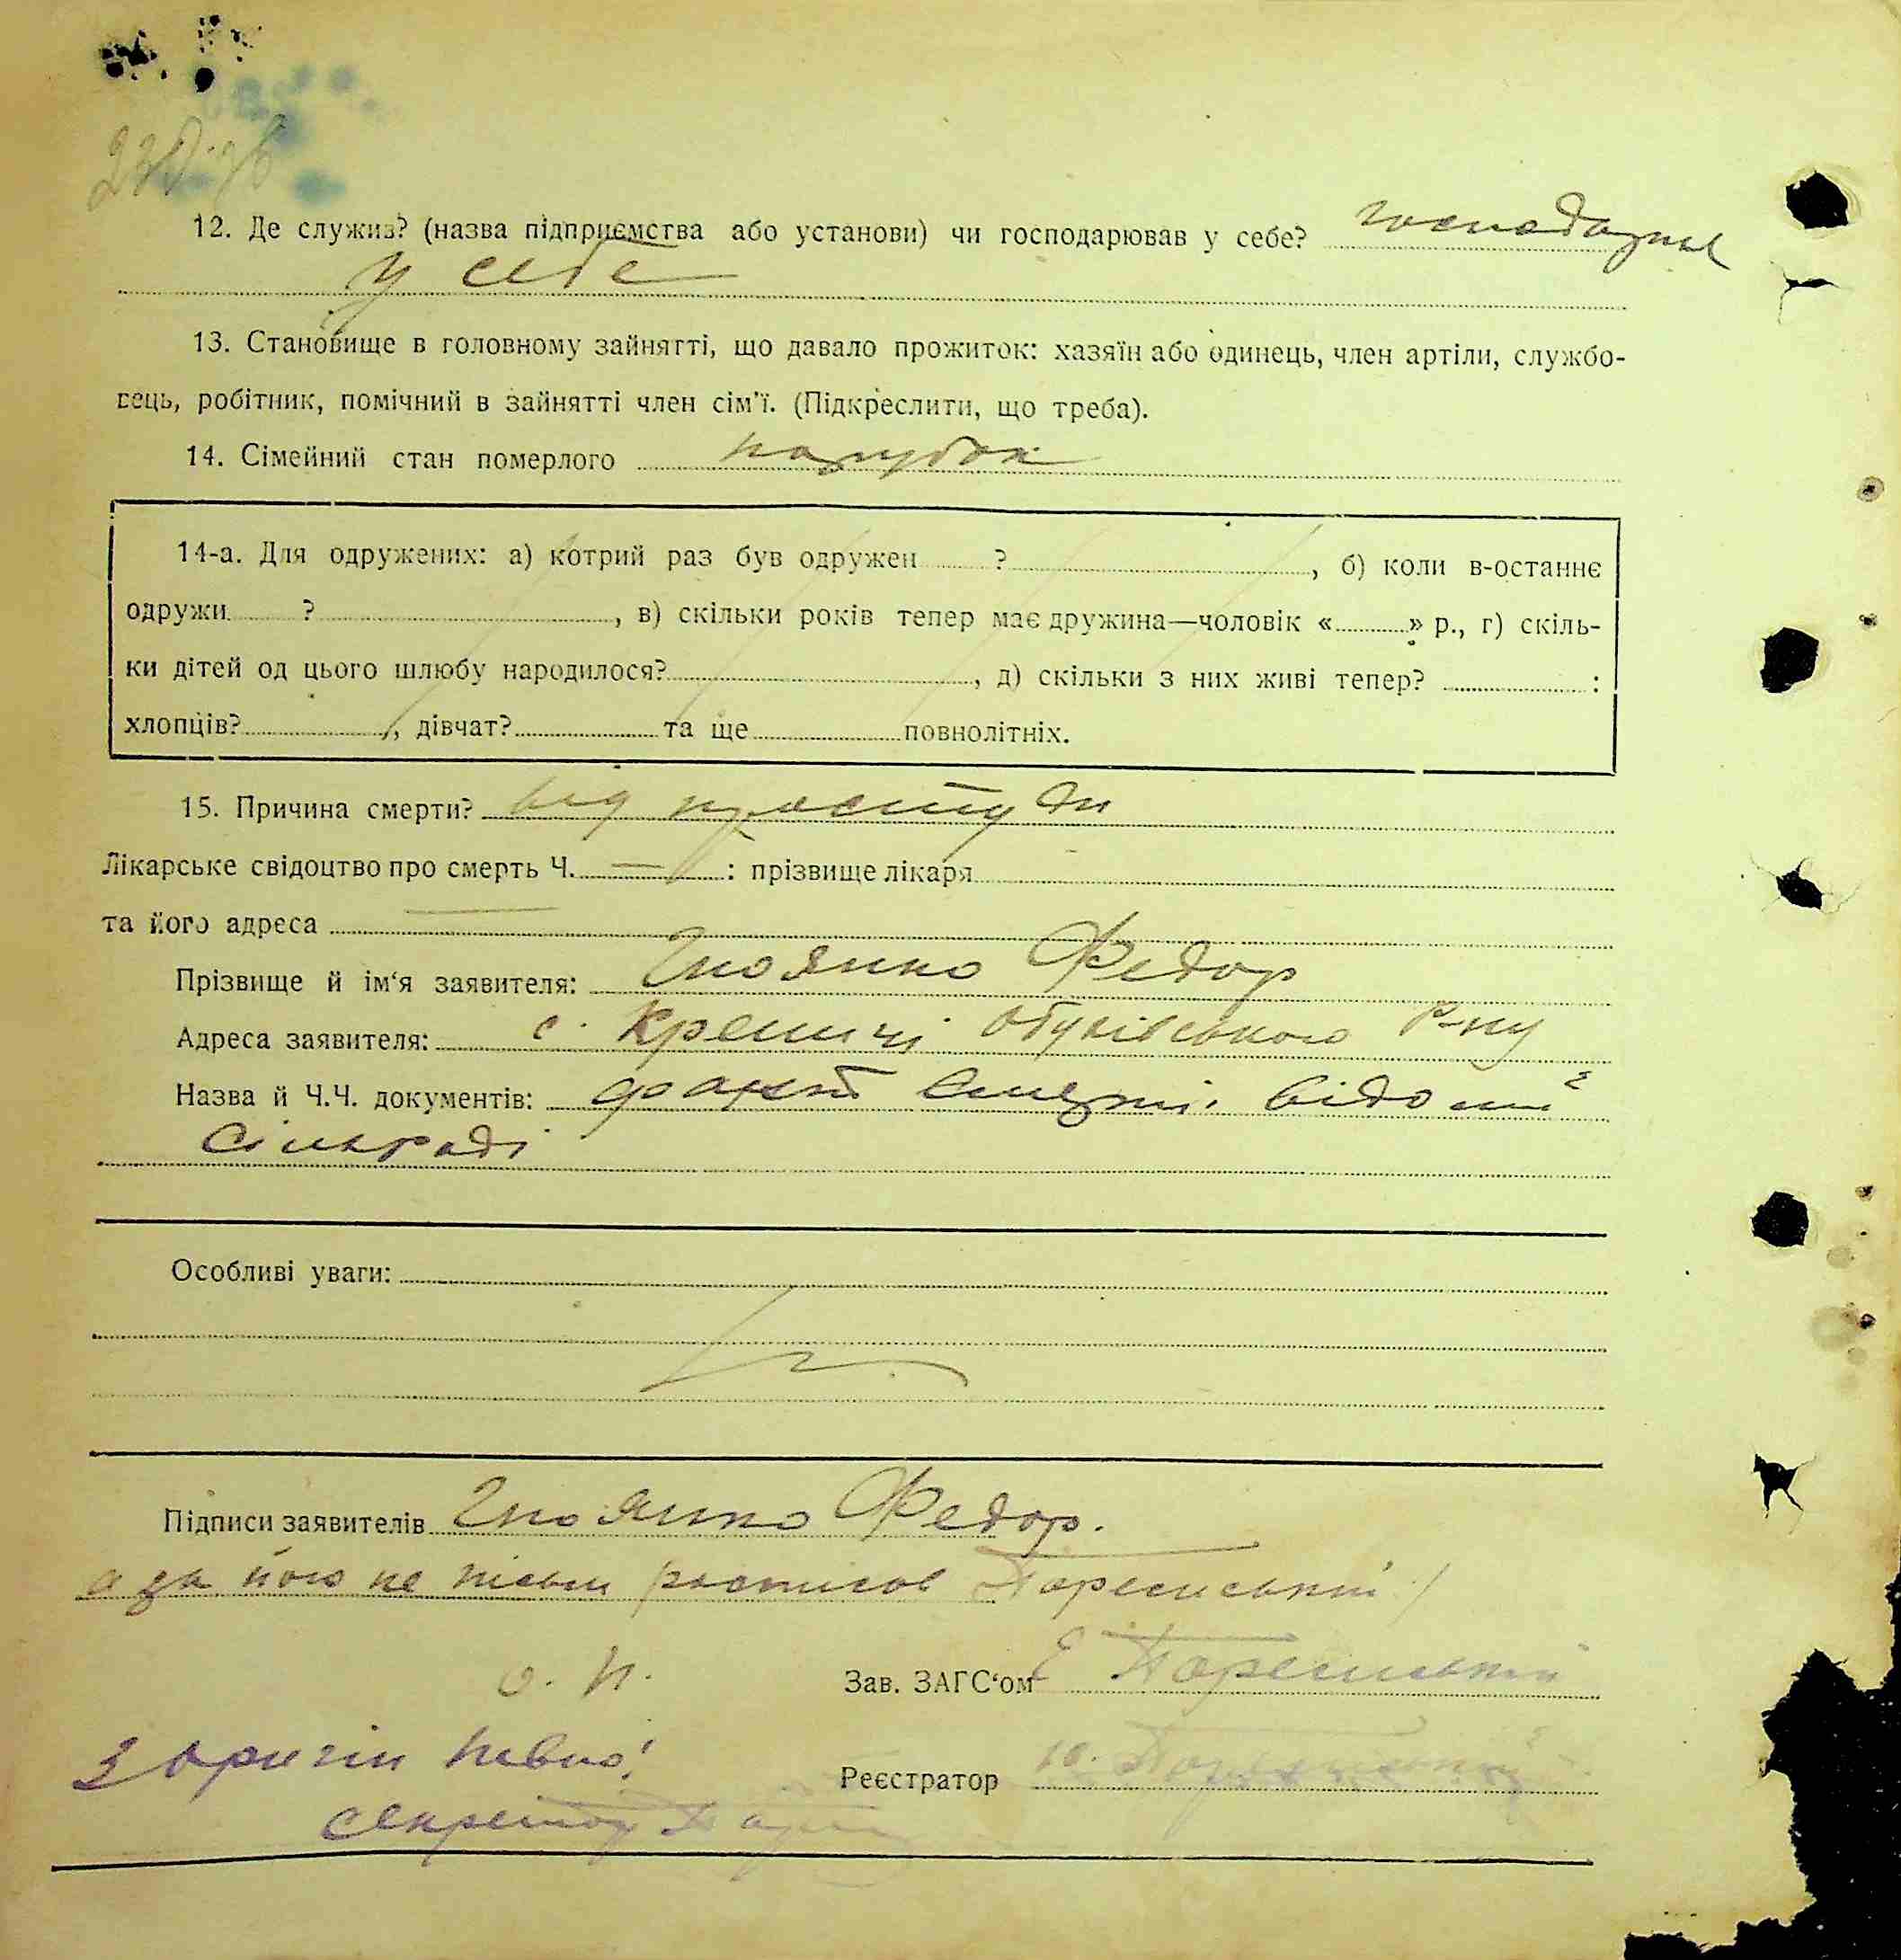 12. Де служив? (назва підприємства або установи) чи господарював у себе? господарив
у себе
13. Становище в головному зайнятті, що давало прожиток: хазяїн або одинець, член артіли, службо-
вець, робітник, помічний в зайнятті член сім'ї. (Підкреслити, що треба).
14. Сімейний стан померлого парубок
14-а. Для одружених: а) котрий раз був одружен ? , б) коли в-останнє
одружи ? , в) скільки років тепер має дружина—чоловік « » р., г) скіль-
ки дітей од цього шлюбу народилося? , д) скільки з них живі тепер? :
хлопців? , дівчат? та ще повнолітніх.
15. Причина смерти? від простуди
Лікарське свідоцтво про смерть Ч. — : прізвище лікаря
та його адреса
Прізвище й ім'я заявителя: Федор
Адреса заявителя: с. Креничі Обухівського р-ну
Назва й Ч.Ч. документів: факт смерті відомий
сільраді
Особливі уваги:
Підписи заявителів Федор.
а за його не письм. росписов
о. п. Зав. ЗАГС'ом
З оригін певно!
Реєстратор
секретар